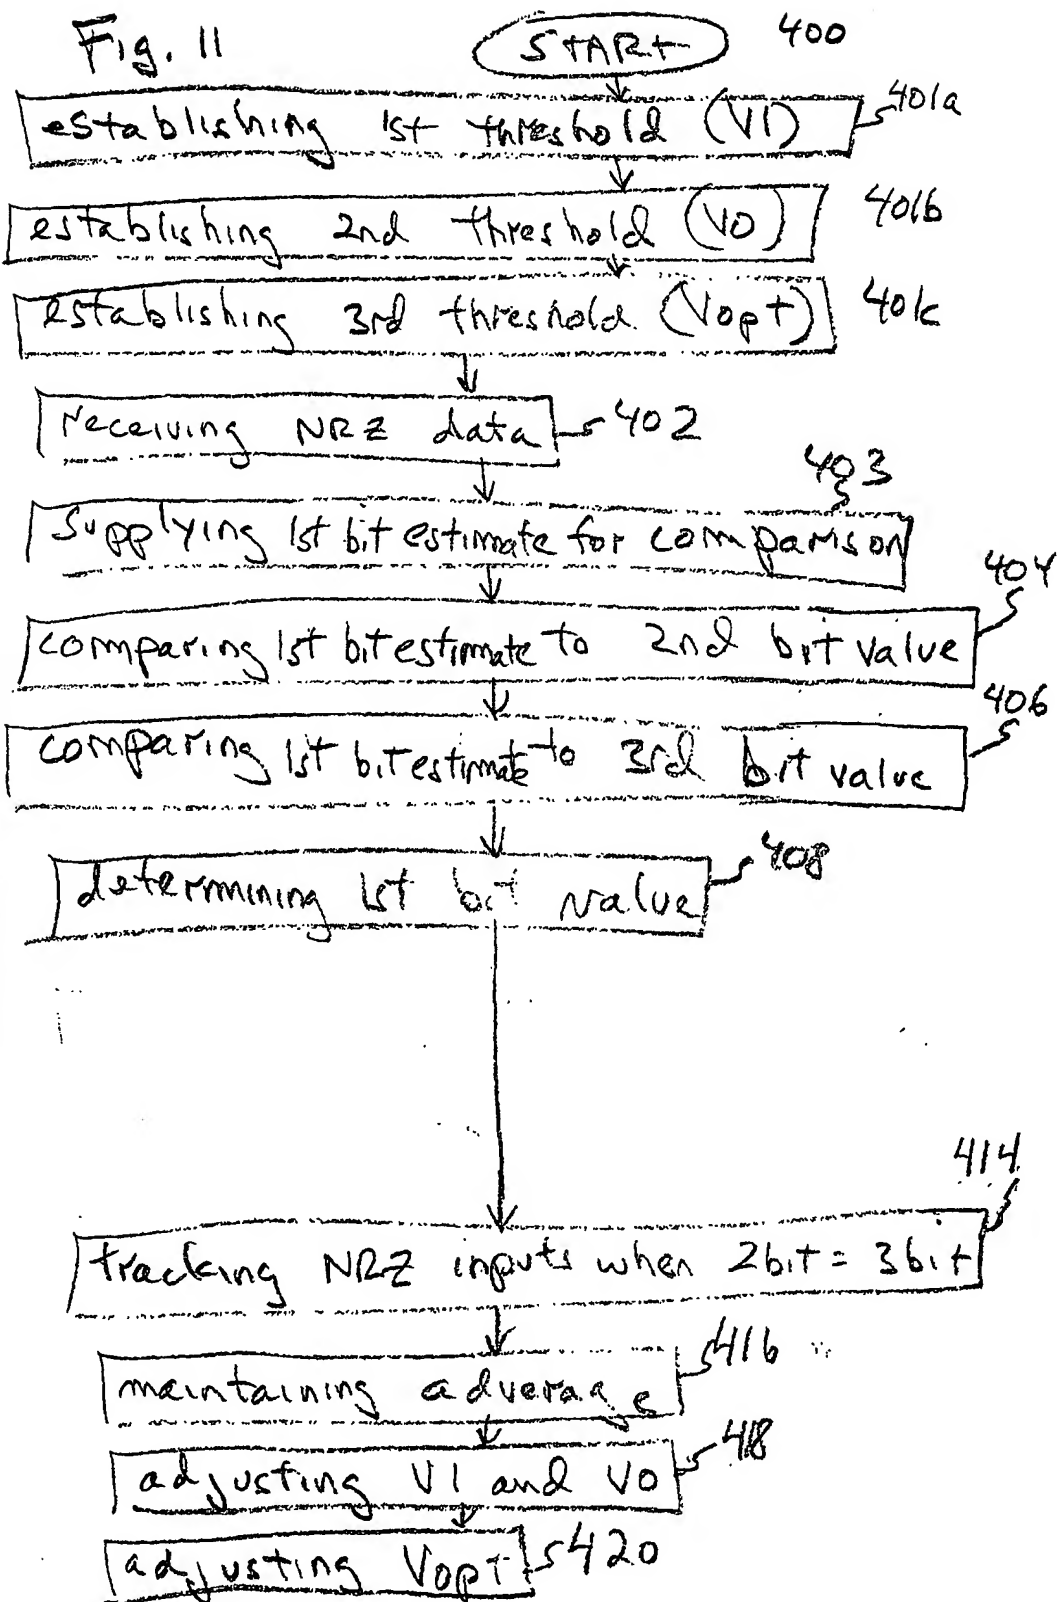 Fig. 11
START 400
establishing 1st threshold (V1) 401a
establishing 2nd threshold (V0) 401b
establishing 3rd threshold (Vopt) 401c
receiving NRZ data 402
403
supplying 1st bit estimate for comparison
404
comparing 1st bit estimate to 2nd bit value
406
comparing 1st bit estimate to 3rd bit value
determining 1st bit value 408
414
tracking NRZ inputs when 2bit = 3bit
maintaining adverage 416
adjusting V1 and V0 418
adjusting Vopt 420